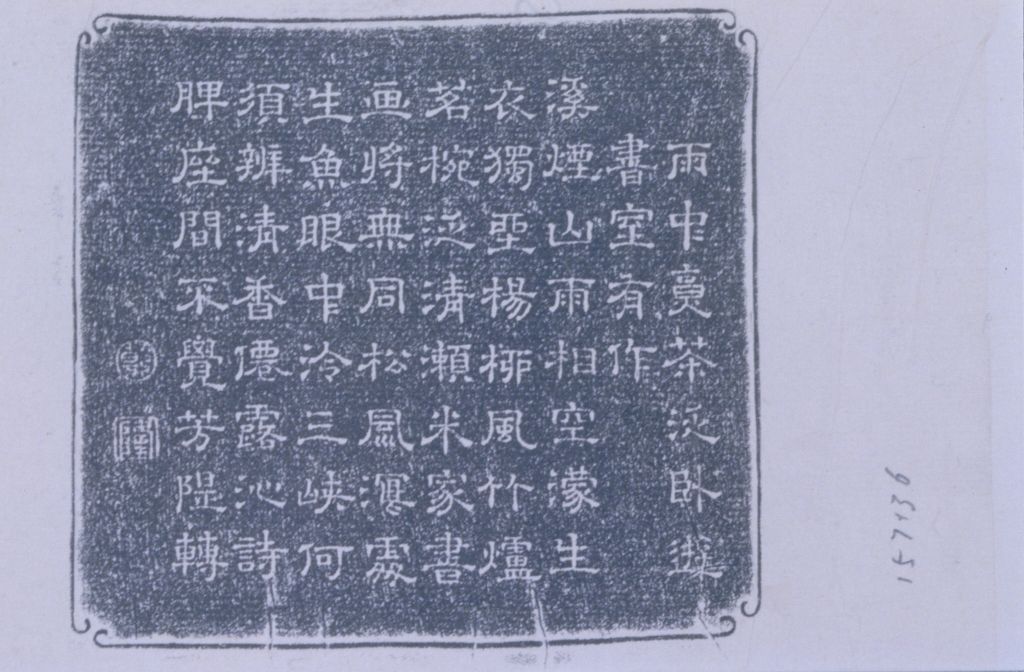 雨中煑茶泛卧遊
書室有作
溪煙山雨相空濛生
衣獨坐楊桺風竹爐
茗椀泛清瀨米家書
画將無同松風瀉處
生魚眼中泠三峽何
須辨清香僊露沁詩
脾座間不覺芳隄轉
乾
隆
157136